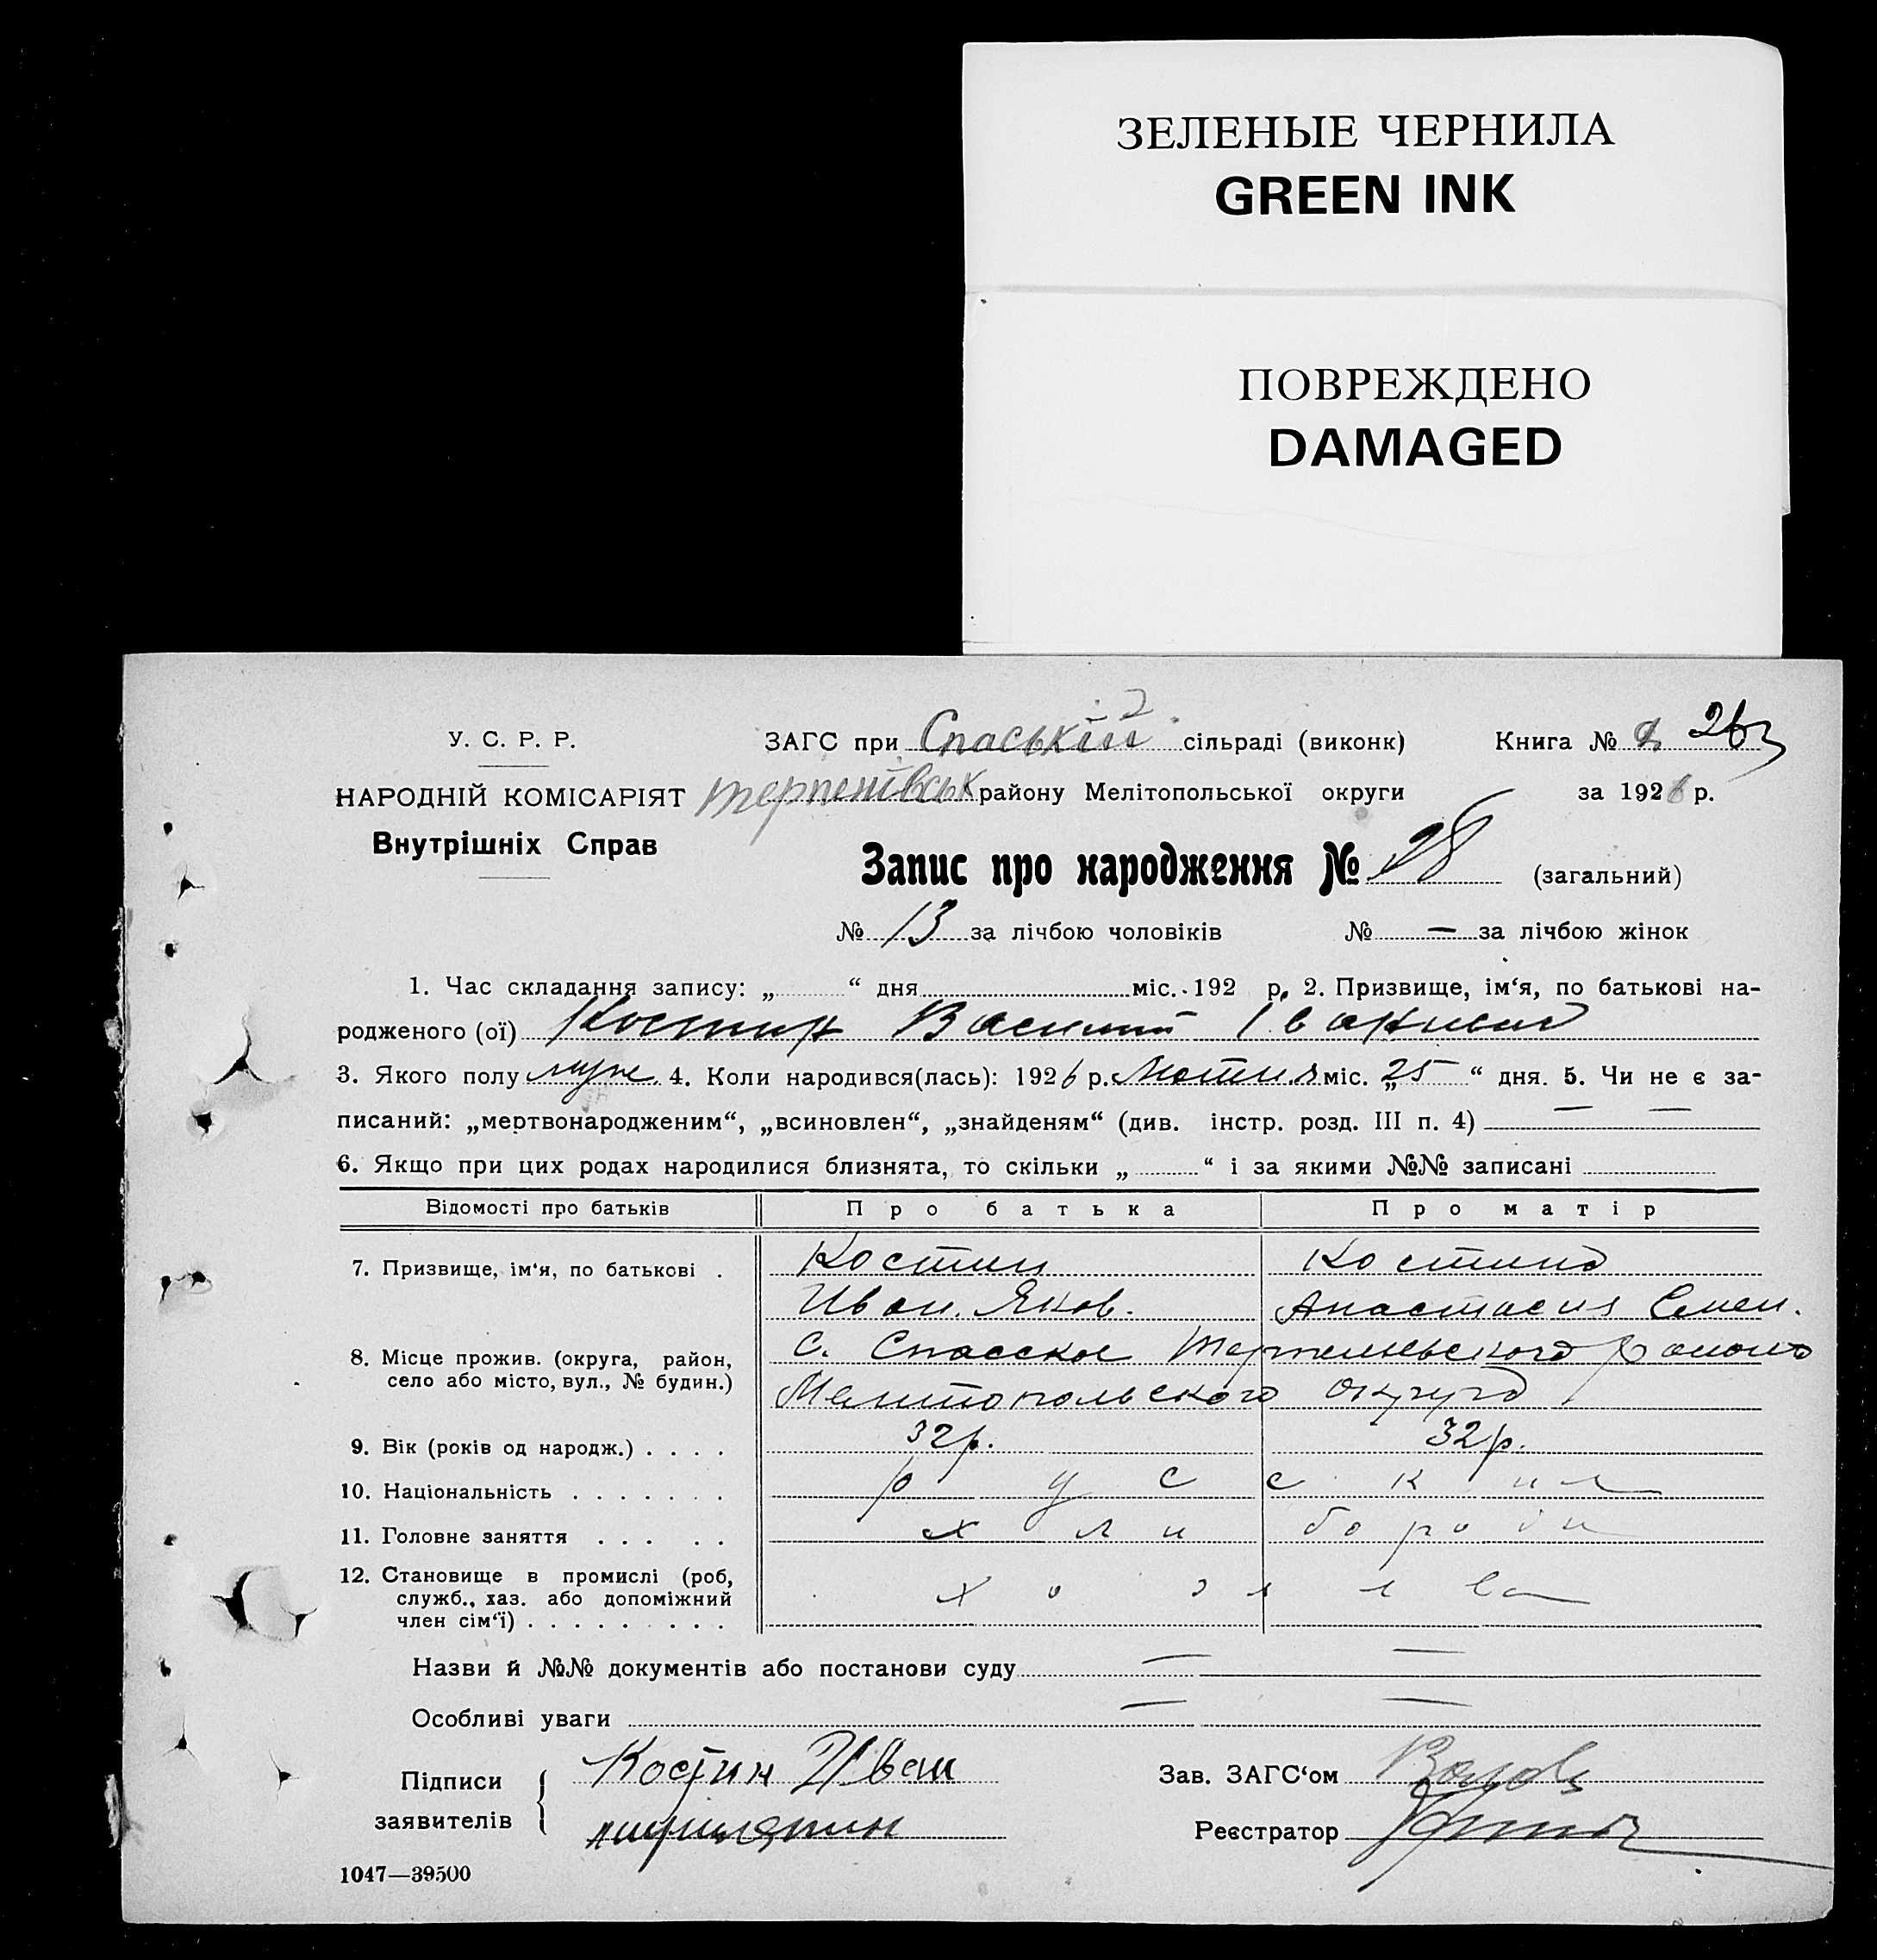 ЗЕЛЕНЫЕ ЧЕРНИЛА
GREEN INK
ПОВРЕЖДЕНО
DAMAGED
У. С. Р. Р.
ЗАГС при Спаській сільраді (виконк) Книга № 263
НАРОДНІЙ КОМІСАРІЯТ Терпенівськ району Мелітопольської округи за 1926 р.
Внутрішніх Справ
Запис про народження № 28 (загальний)
№ 13 за лічбою чоловіків № — за лічбою жінок
1. Час складання запису: „ “ дня міс. 192 р. 2. Призвище, ім‘я, по батькові на-
родженого (ої) Костин Василий Іванович
3. Якого полу муж. 4. Коли народився(лась): 1926 р. Лютня міс. „25“ дня. 5. Чи не є за-
писаний: „мертвонародженим“, „всиновлен“, „знайденям“ (див. інстр. розд. III п. 4) — —
6. Якщо при цих родах народилися близнята, то скільки „ “ і за якими №№ записані
Відомості про батьків Про батька Про матір
7. Призвище, ім‘я, по батькові . Костин Костина
Иван. Яков. Анастасия Семен.
8. Місце прожив. (округа, район, с. Спасское Терпеньевского района
село або місто, вул., № будин.) Мелитопольского округа
9. Вік (років од народж.) . . . . 32р. 32р.
10. Національність . . . . . . . русския
11. Головне заняття . . . . .
12. Становище в промислі (роб,
служб., хаз. або допоміжний хозяева
член сім‘ї) . . . . . . . . .
Назви й №№ документів або постанови суду — —
Особливі уваги — —
Підписи Костин Иван Зав. ЗАГС‘ом
заявителів Реєстратор
1047—39500